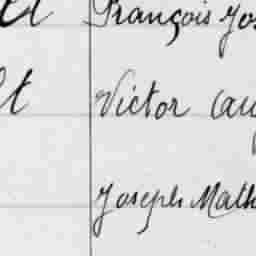 François Jos
Victor Aug
Joseph Math